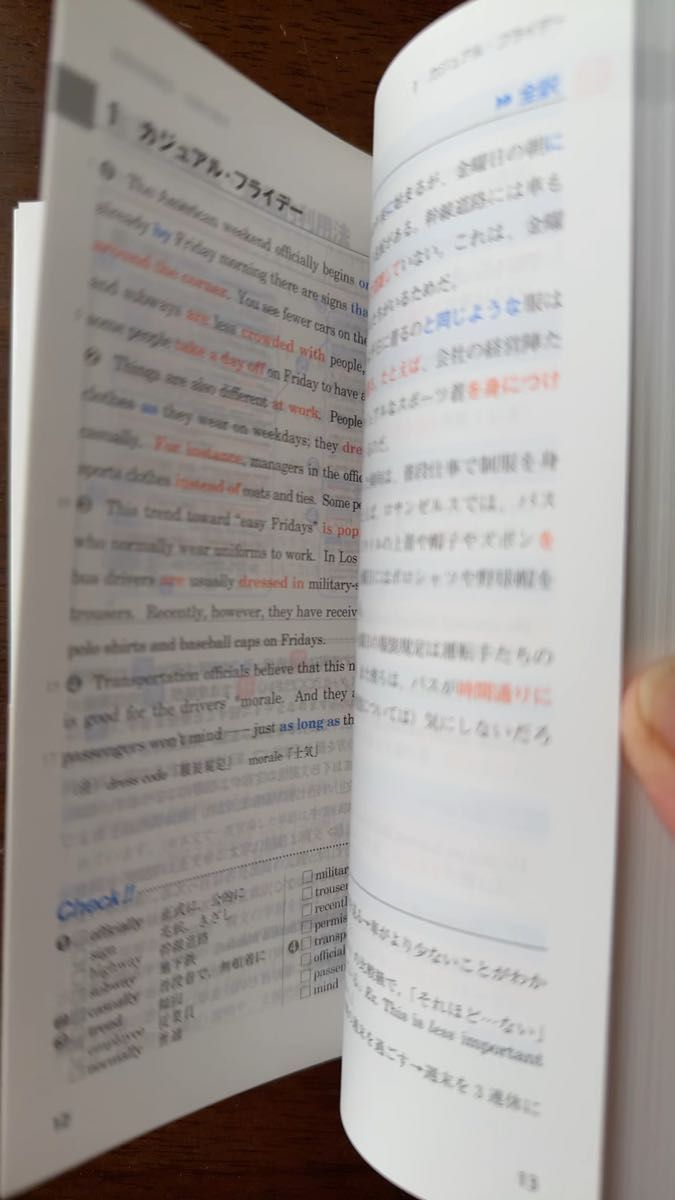 1 カジュアル・フライデー
❶ The American weekend officially begins on
already by Friday morning there are signs tha
around the corner. You see fewer cars on the
and subways are less crowded with people,
5 some people take a day off on Friday to have a
❷ Things are also different at work. People
clothes as they wear on weekdays; they dre
casually. For instance, managers in the offic
sports clothes instead of coats and ties. Some pe
10 ❸ This trend toward "easy Fridays" is pop
who normally wear uniforms to work. In Los
bus drivers are usually dressed in military-s
trousers. Recently, however, they have receiv
polo shirts and baseball caps on Fridays.
15 ❹ Transportation officials believe that this n
is good for the drivers' *morale. And they a
passengers won't mind — just as long as th
17 (注) dress code「服装規定」 morale「士気」
Check!!
❶ officially 正式に、公的に
sign 兆候、きざし
highway 幹線道路
subway 地下鉄
❷ casually 普段着で、無頓着に
❸ trend 傾向
employee 従業員
normally 普通
military
trouser
recentl
permis
❹ transp
official
passen
mind
12
1 カジュアル・フライデー
▶▶ 全訳
に始まるが、金曜日の朝に
がある。幹線道路には車も
していない。これは、金曜
がいるためだ。
に着るのと同じような服は
たとえば、会社の経営陣た
アルなスポーツ着を身につけ
のだ。
は、普段仕事で制服を身
ば、ロサンゼルスでは、バス
イルの上着や帽子やズボンを
日にはポロシャツや野球帽を
の服装規定は運転手たちの
は、バスが時間通りに
については）気にしないだろ
車がより少ないことがわか
の比較級で、「それほど…ない」
る。Ex. This is less important
週末を過ごす→週末を3連休に
13